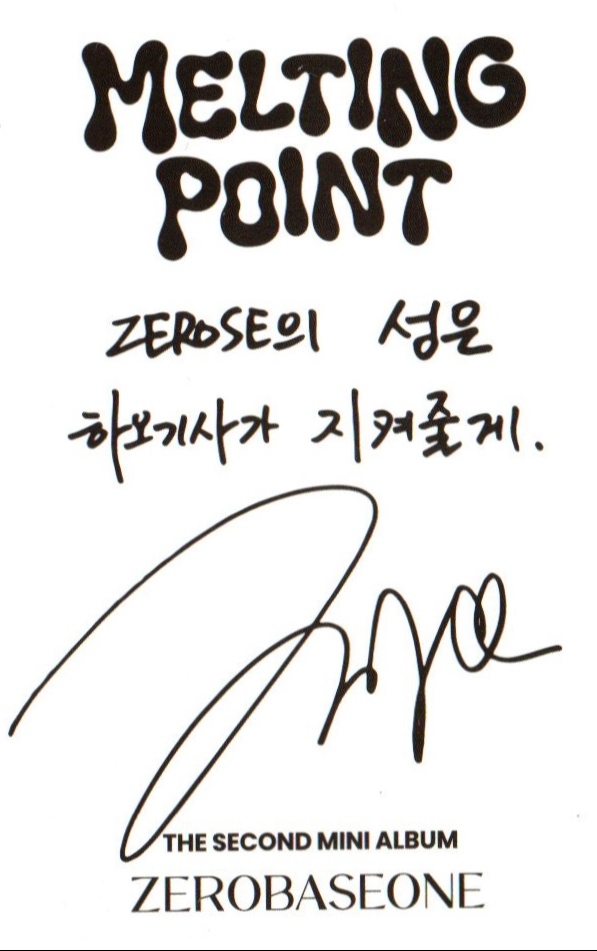 MELTING
POINT
ZEROSE의 성은
하오기사가 지켜줄게.
THE SECOND MINI ALBUM
ZEROBASEONE